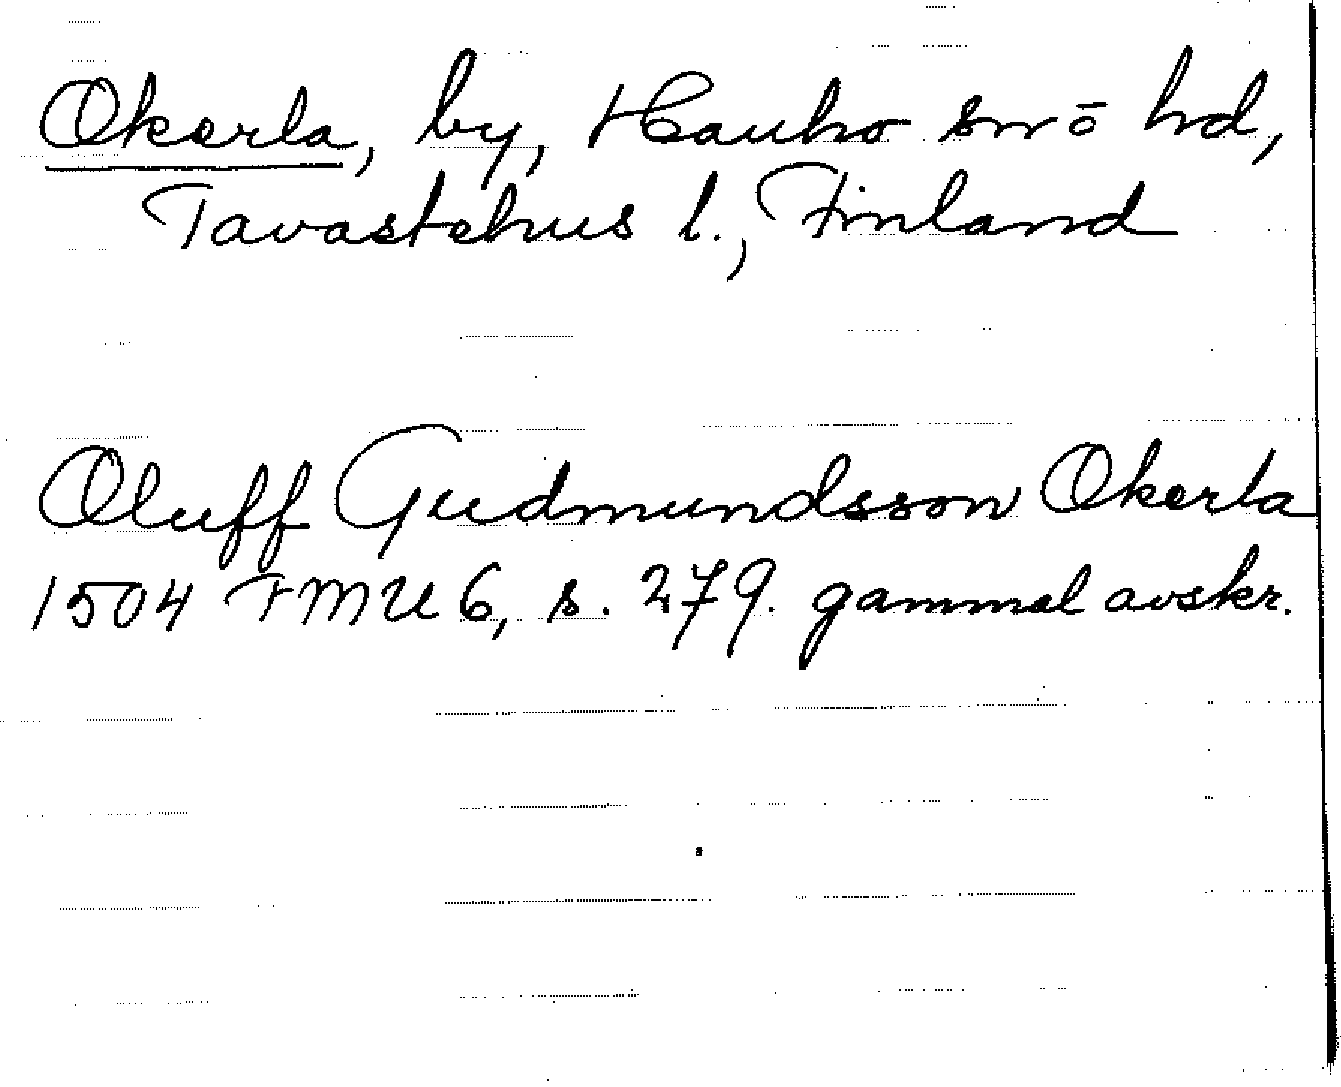 Okerla, by, Hauho sn o hd,
Tavastehus l., Finland
Oluff Gudmundsson Okerla
1504 FMU 6, s. 279. gammal avskr.